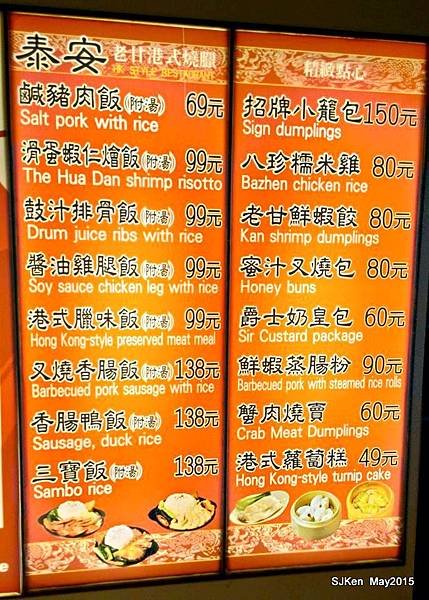 泰安 老甘港式燒臘
HK STYLE RESTAURANT
鹹豬肉飯(附湯) 69元
Salt pork with rice
滑蛋蝦仁燴飯(附湯) 99元
The Hua Dan shrimp risotto
鼓汁排骨飯(附湯) 99元
Drum juice ribs with rice
醬油雞腿飯(附湯) 99元
Soy sauce chicken leg with rice
港式臘味飯(附湯) 99元
Hong Kong-style preserved meat meal
叉燒香腸飯(附湯) 138元
Barbecued pork sausage with rice
香腸鴨飯(附湯) 138元
Sausage, duck rice
三寶飯(附湯) 138元
Sambo rice
精緻點心
招牌小籠包 150元
Sign dumplings
八珍糯米雞 80元
Bazhen chicken rice
老甘鮮蝦餃 80元
Kan shrimp dumplings
蜜汁叉燒包 80元
Honey buns
爵士奶皇包 60元
Sir Custard package
鮮蝦蒸腸粉 90元
Barbecued pork with steamed rice rolls
蟹肉燒賣 60元
Crab Meat Dumplings
港式蘿蔔糕 49元
Hong Kong-style turnip cake
SJKen May2015